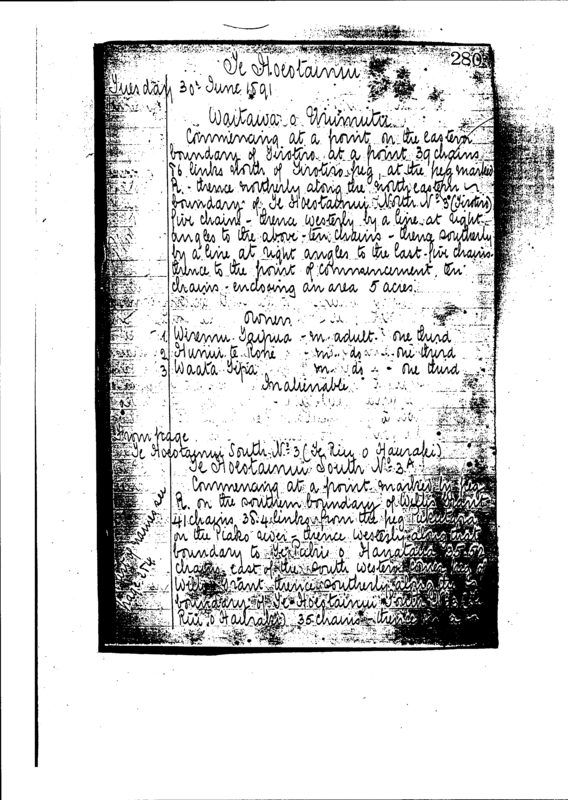 280
Te Hoeotainui
Tuesday 30th June 1891
Waitawa o
Commencing at a point on the eastern
boundary of Tirotiro at a point 39 chains
56 links North of Tirotiro peg, at the peg marked
R. - thence northerly along the north eastern
boundary of Te Hoeotainui North No 5 (Tirotiro)
five chains - thence westerly by a line at right
angles to the above - ten chains - thence southerly
by a line at right angles to the last - five chains
thence to the point of commencement ten
chains - enclosing an area 5 acres.
Owners
1 Wiremu Taipua - m. adult - one third
2 te Rohe - m. do - one third
3 Waata Tipa m do - one third
Inalienable
From page
Te Hoeotainui South No 3 (Te Riu o Hauraki)
Te Hoeotainui South No 3A
Commencing at a point marked by peg
R. on the southern boundary of Grant
41 chains, 35.4 links, from the peg
on the Piako river - thence westerly along that
boundary to Te o
chains east of the South Western Corner peg of
Grant, thence southerly along the
boundary of Te Hoeotainui South No 3 (Te
Riu o Hauraki) 35 chains - thence in a
names see
page 254